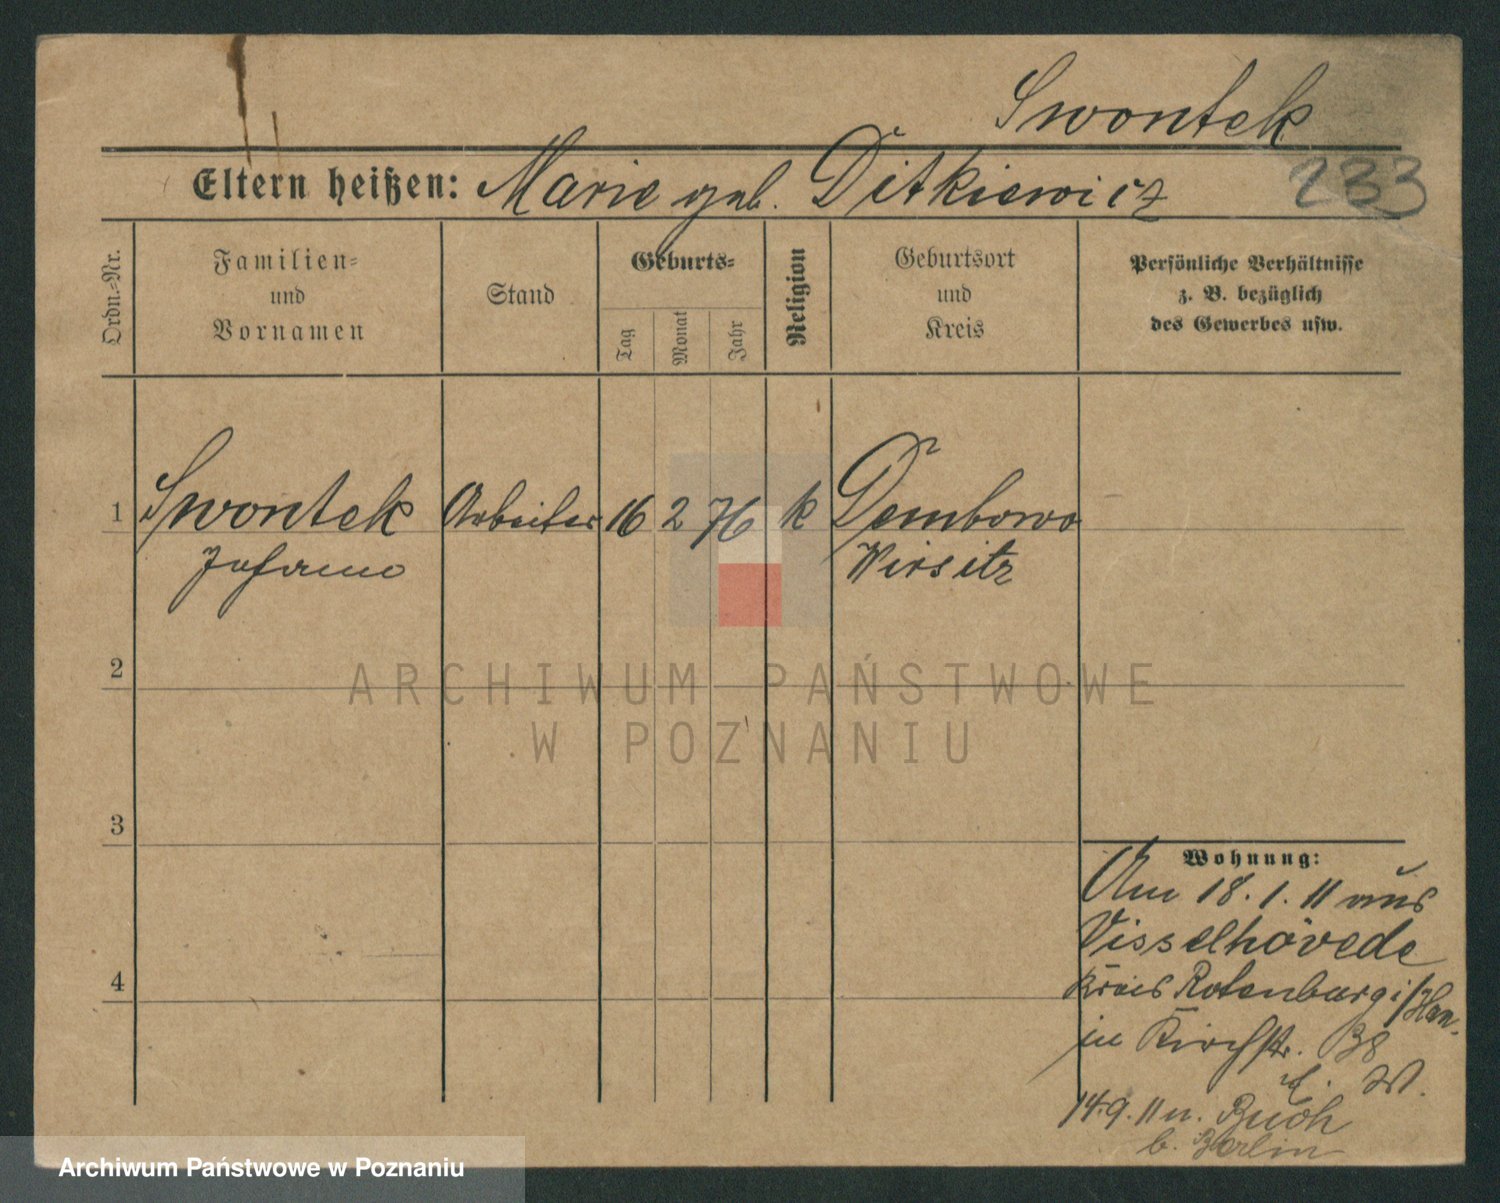 Swontek
Eltern heißen: Marie geb. Ditkiewicz
233
Ordn.-Nr.
Familien- und Vornamen
Stand
Geburts-
Tag
Monat
Jahr
Religion
Geburtsort und Kreis
Persönliche Verhältnisse
z. B. bezüglich
des Gewerbes usw.
1 Swontek Arbeiter 16 2 76 k Dembowo
Johann Wirsitz
2
ARCHIWUM PAŃSTWOWE
W POZNANIU
3
Wohnung:
Am 18.1.11 aus
Visselhövede
Kreis Rotenburg i/Han.
in Kirchstr. 38
W.
14.9.11 n. Buch
b. Berlin
4
Archiwum Państwowe w Poznaniu